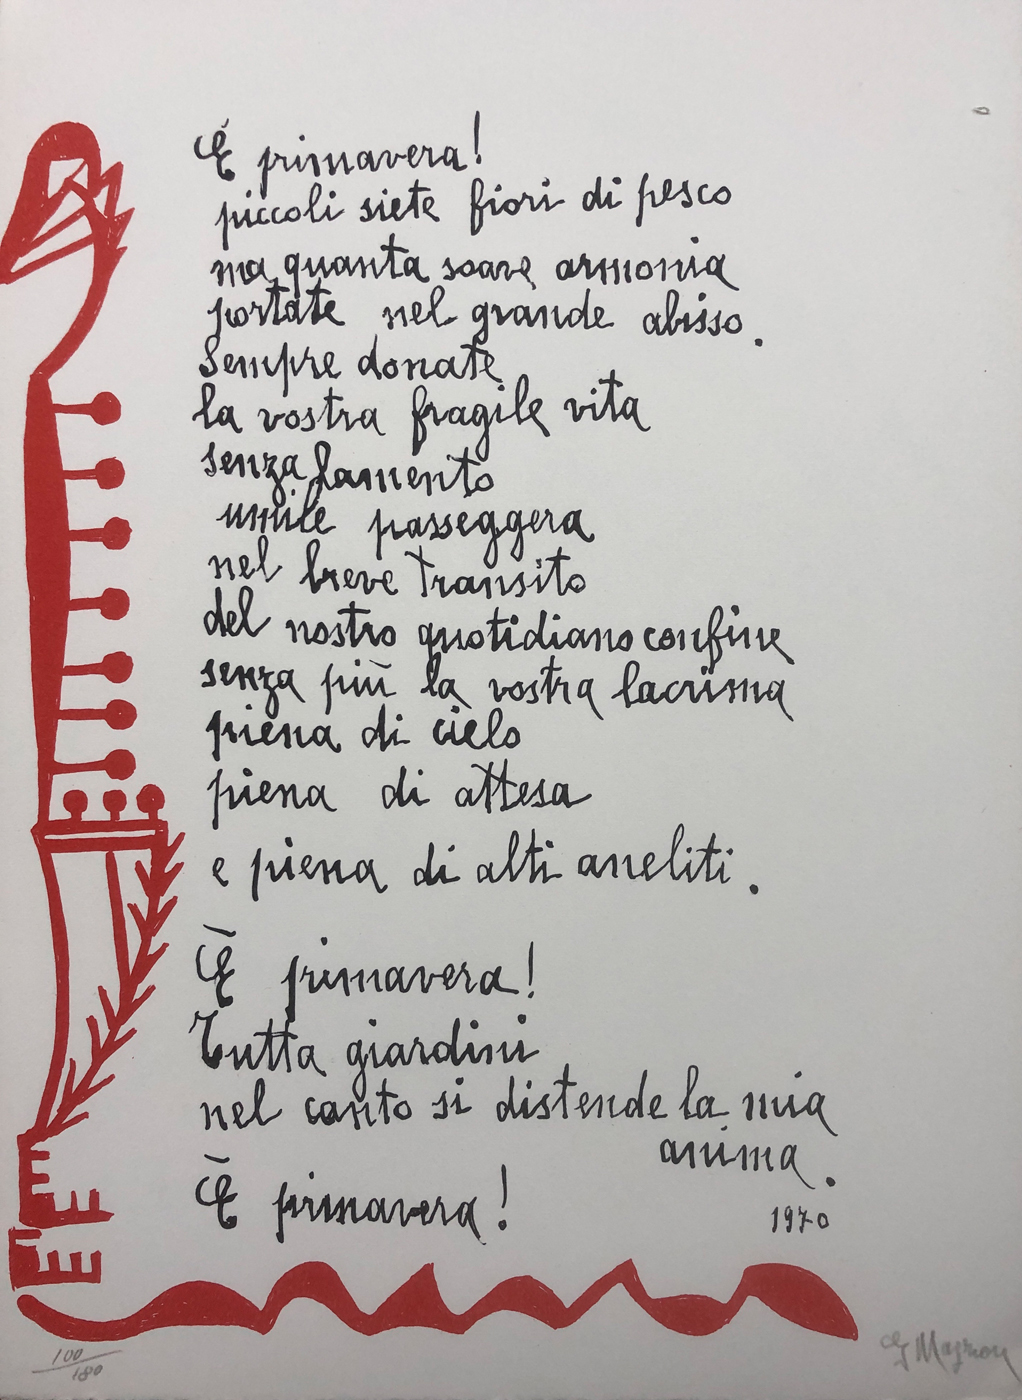 È primavera!
piccoli siete fiori di pesco
ma quanta soave armonia
portate nel grande abisso.
Sempre donate
la vostra fragile vita
senza lamento
umile passeggera
nel breve transito
del nostro quotidiano confine
senza più la vostra lacrima
piena di cielo
piena di attesa
e piena di alti aneliti.
È primavera!
Tutta giardini
nel canto si distende la mia
anima.
È primavera!
1970
100/180